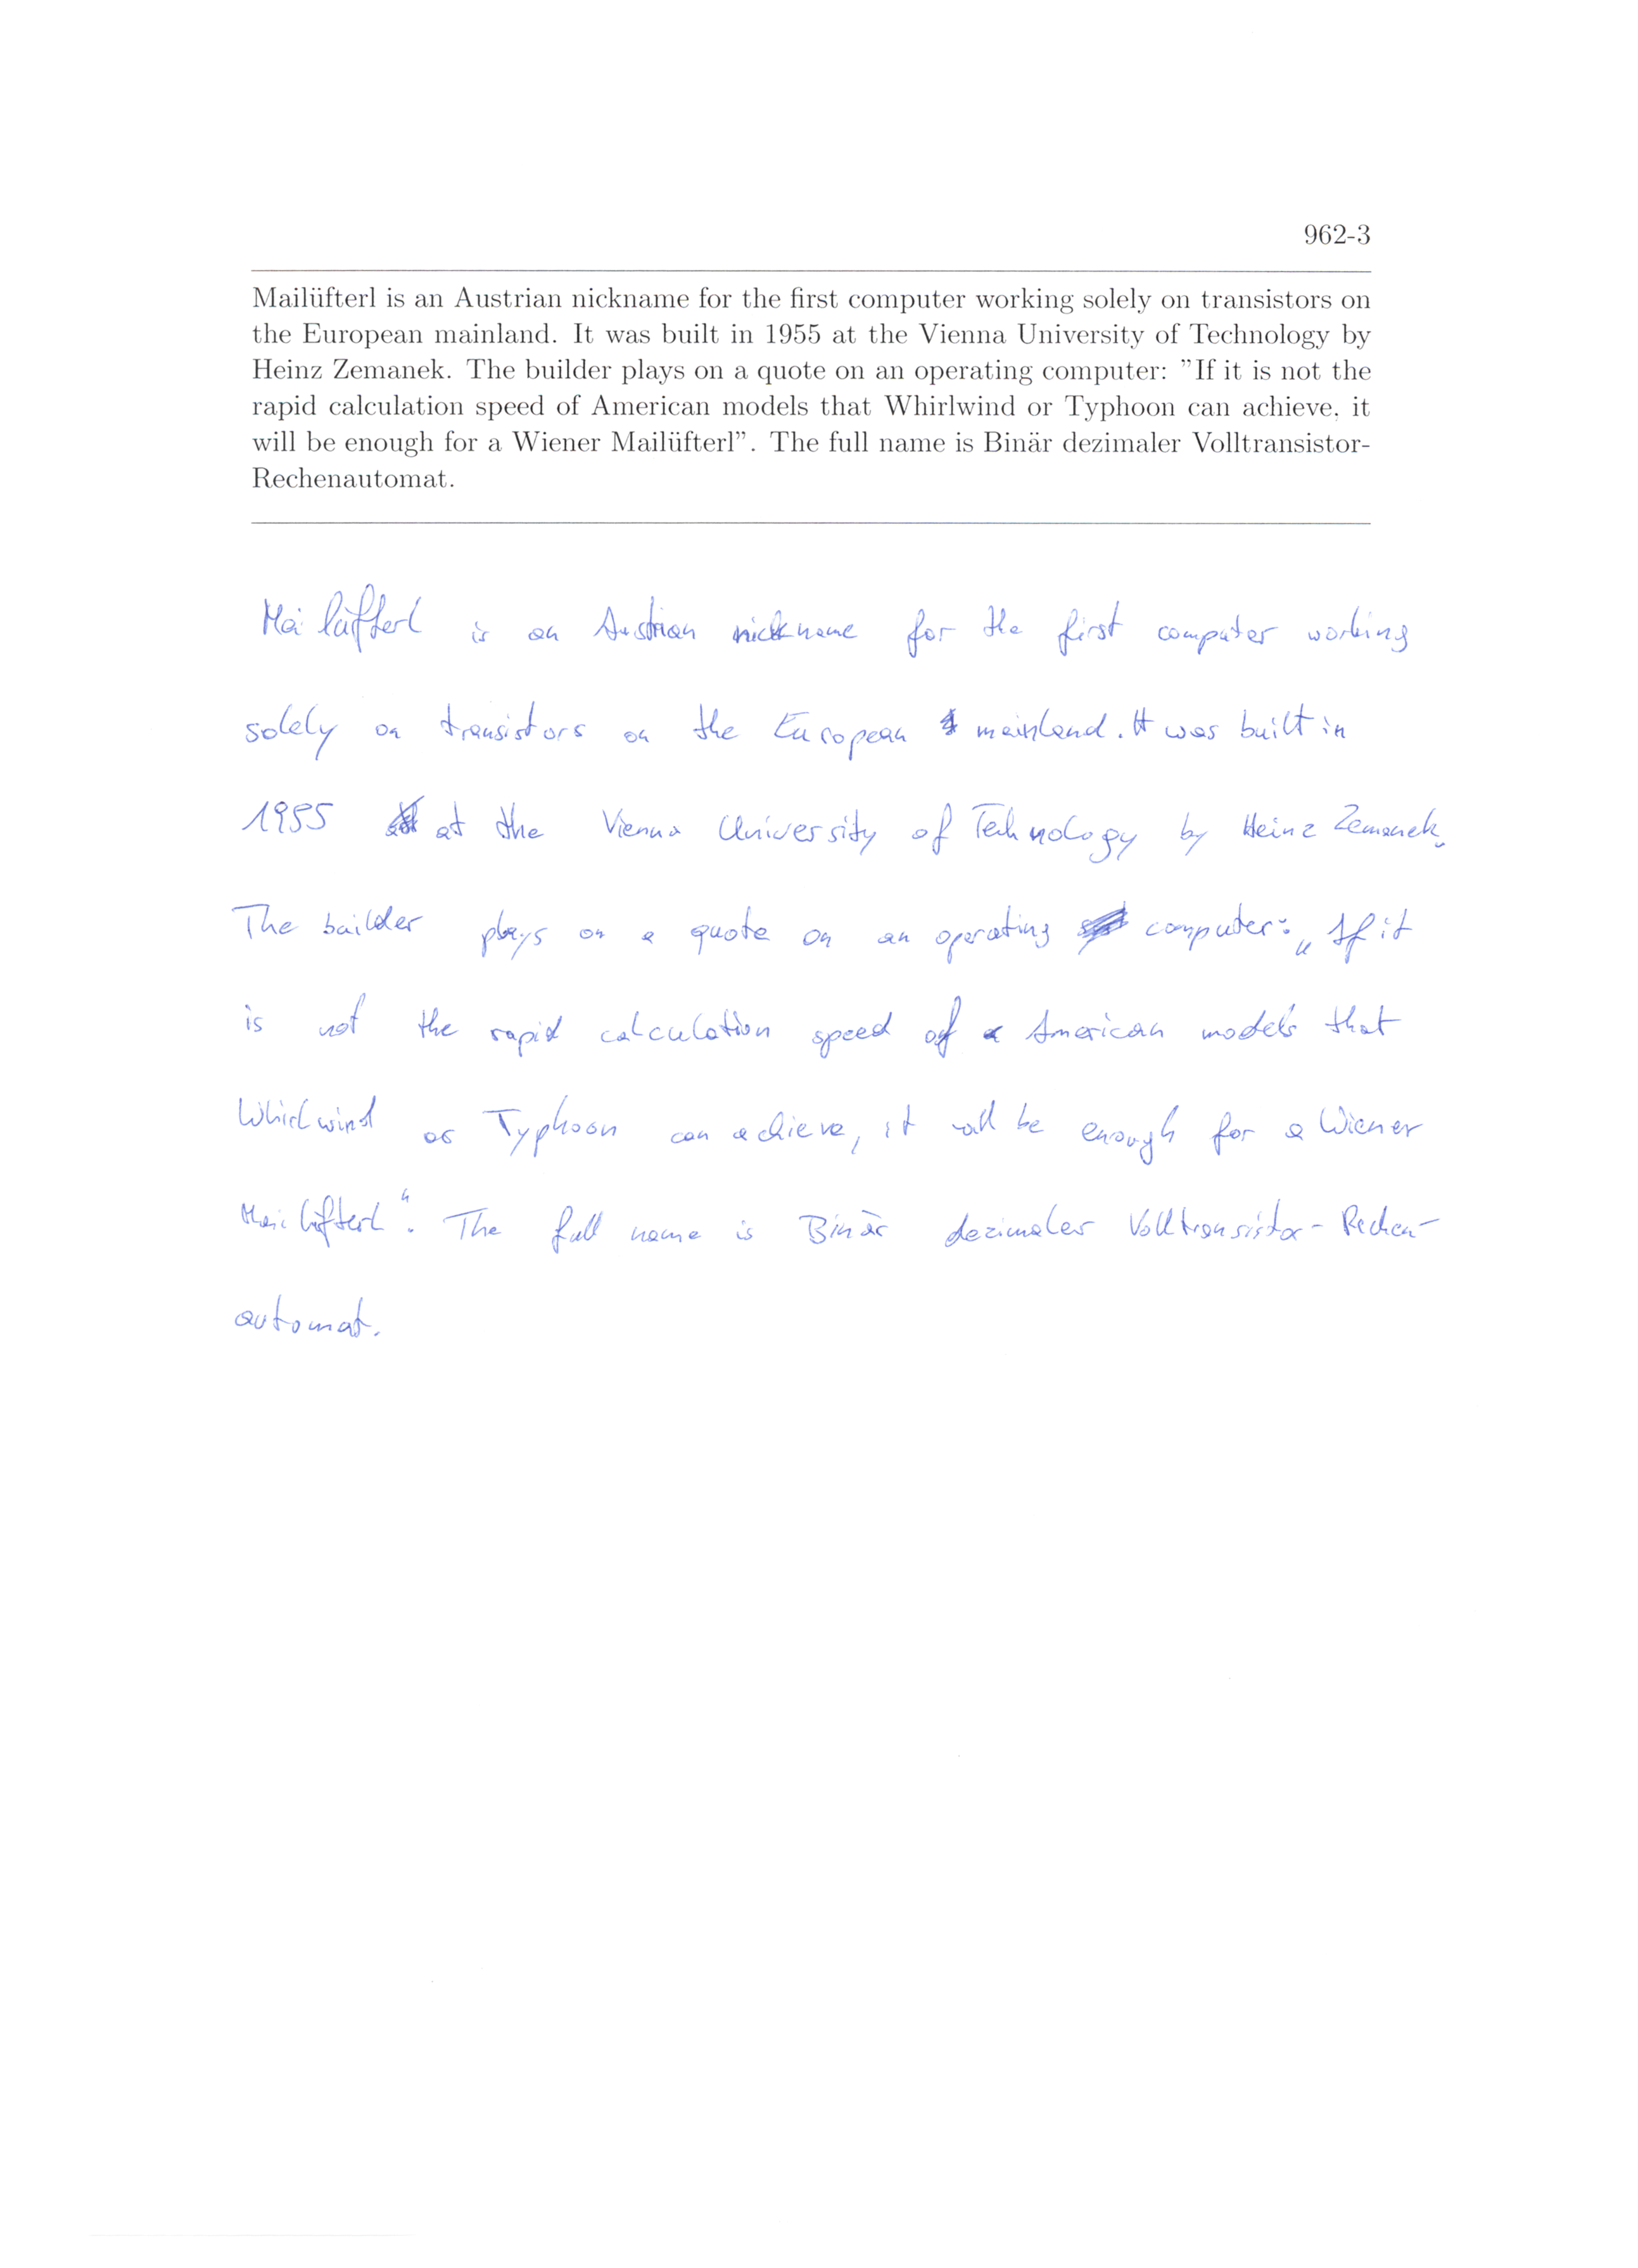 962-3
Mailüfterl is an Austrian nickname for the first computer working solely on transistors on
the European mainland. It was built in 1955 at the Vienna University of Technology by
Heinz Zemanek. The builder plays on a quote on an operating computer: ”If it is not the
rapid calculation speed of American models that Whirlwind or Typhoon can achieve, it
will be enough for a Wiener Mailüfterl”. The full name is Binär dezimaler Volltransistor-
Rechenautomat.
Mailüfterl is an Austrian nickname for the first computer working
solely on transistors on the European mainland. It was built in
1955 at the Vienna University of Technology by Heinz Zemanek.
The builder plays on a quote on an operating computer: „If it
is not the rapid calculation speed of American models that
Whirlwind or Typhoon can achieve, it will be enough for a Wiener
Mailüfterl“. The full name is Binär dezimaler Volltransistor-Rechen-
automat.